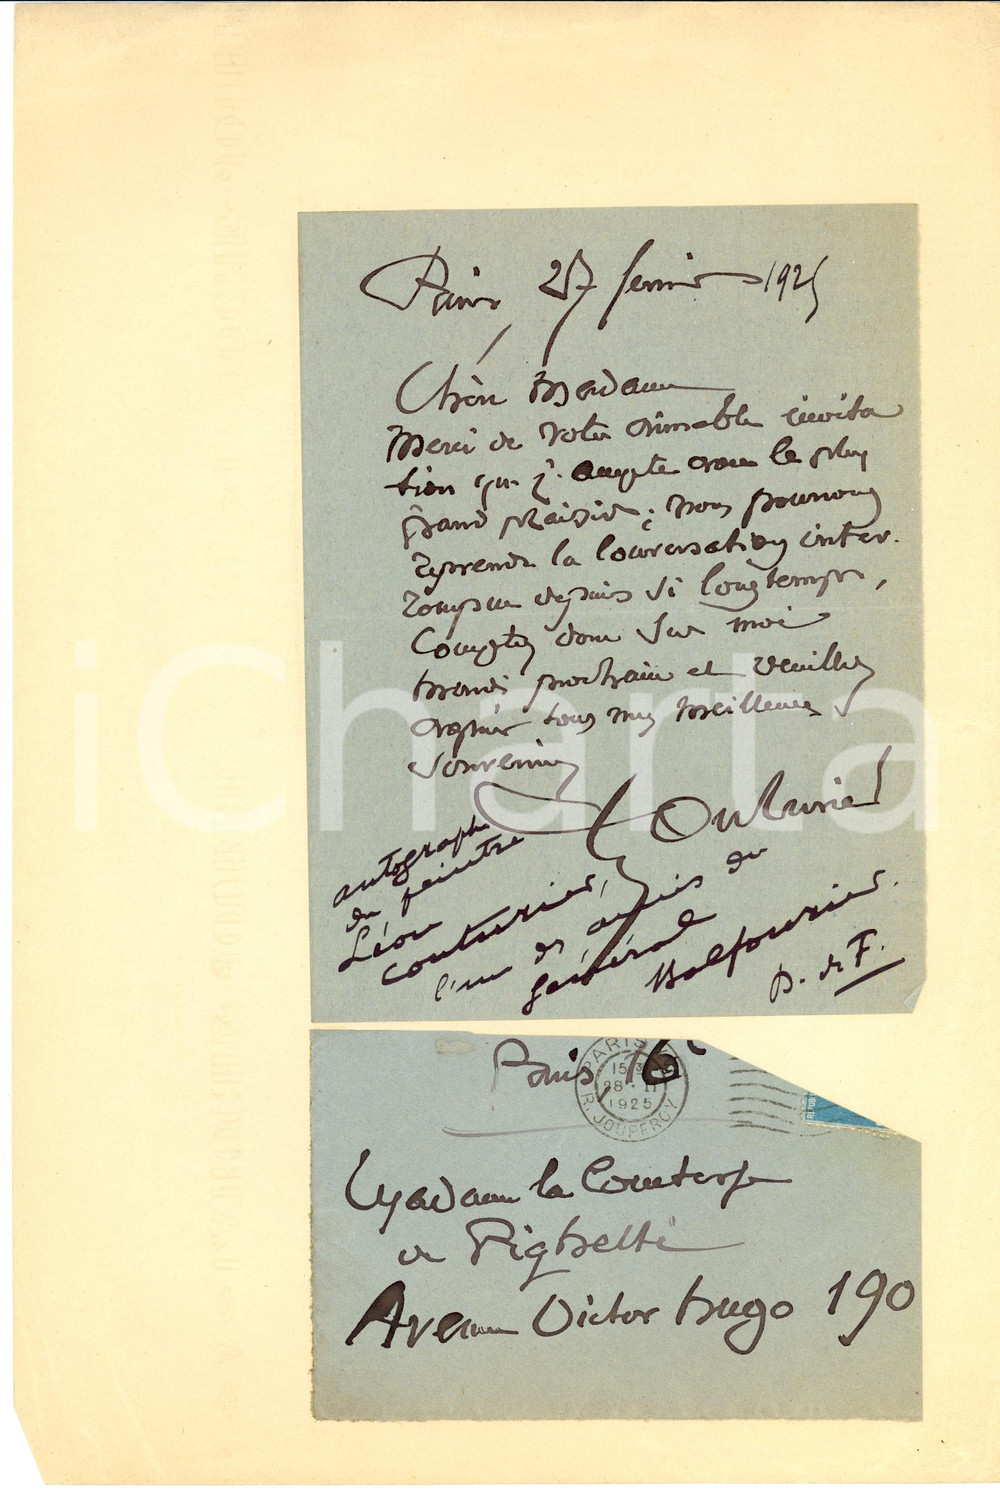 Paris 27 février 1925
Chère Madame
Merci de votre aimable invita
tion que j'accepte avec le plus
grand plaisir ; nous pourrons
reprendre la conversation inter-
rompue depuis si longtemps,
Comptez donc sur moi
mardi prochain et veuillez
agréer tous mes meilleurs
souvenirs
L Couturier
autographe
du peintre
Léon
Couturier,
l'un des amis du
général Balfourier.
P. de F.
Paris, 16e
PARIS
15
28 - II
1925
R. JOUFFROY
Madame la Comtesse
de
Avenue Victor Hugo 190
iCharta